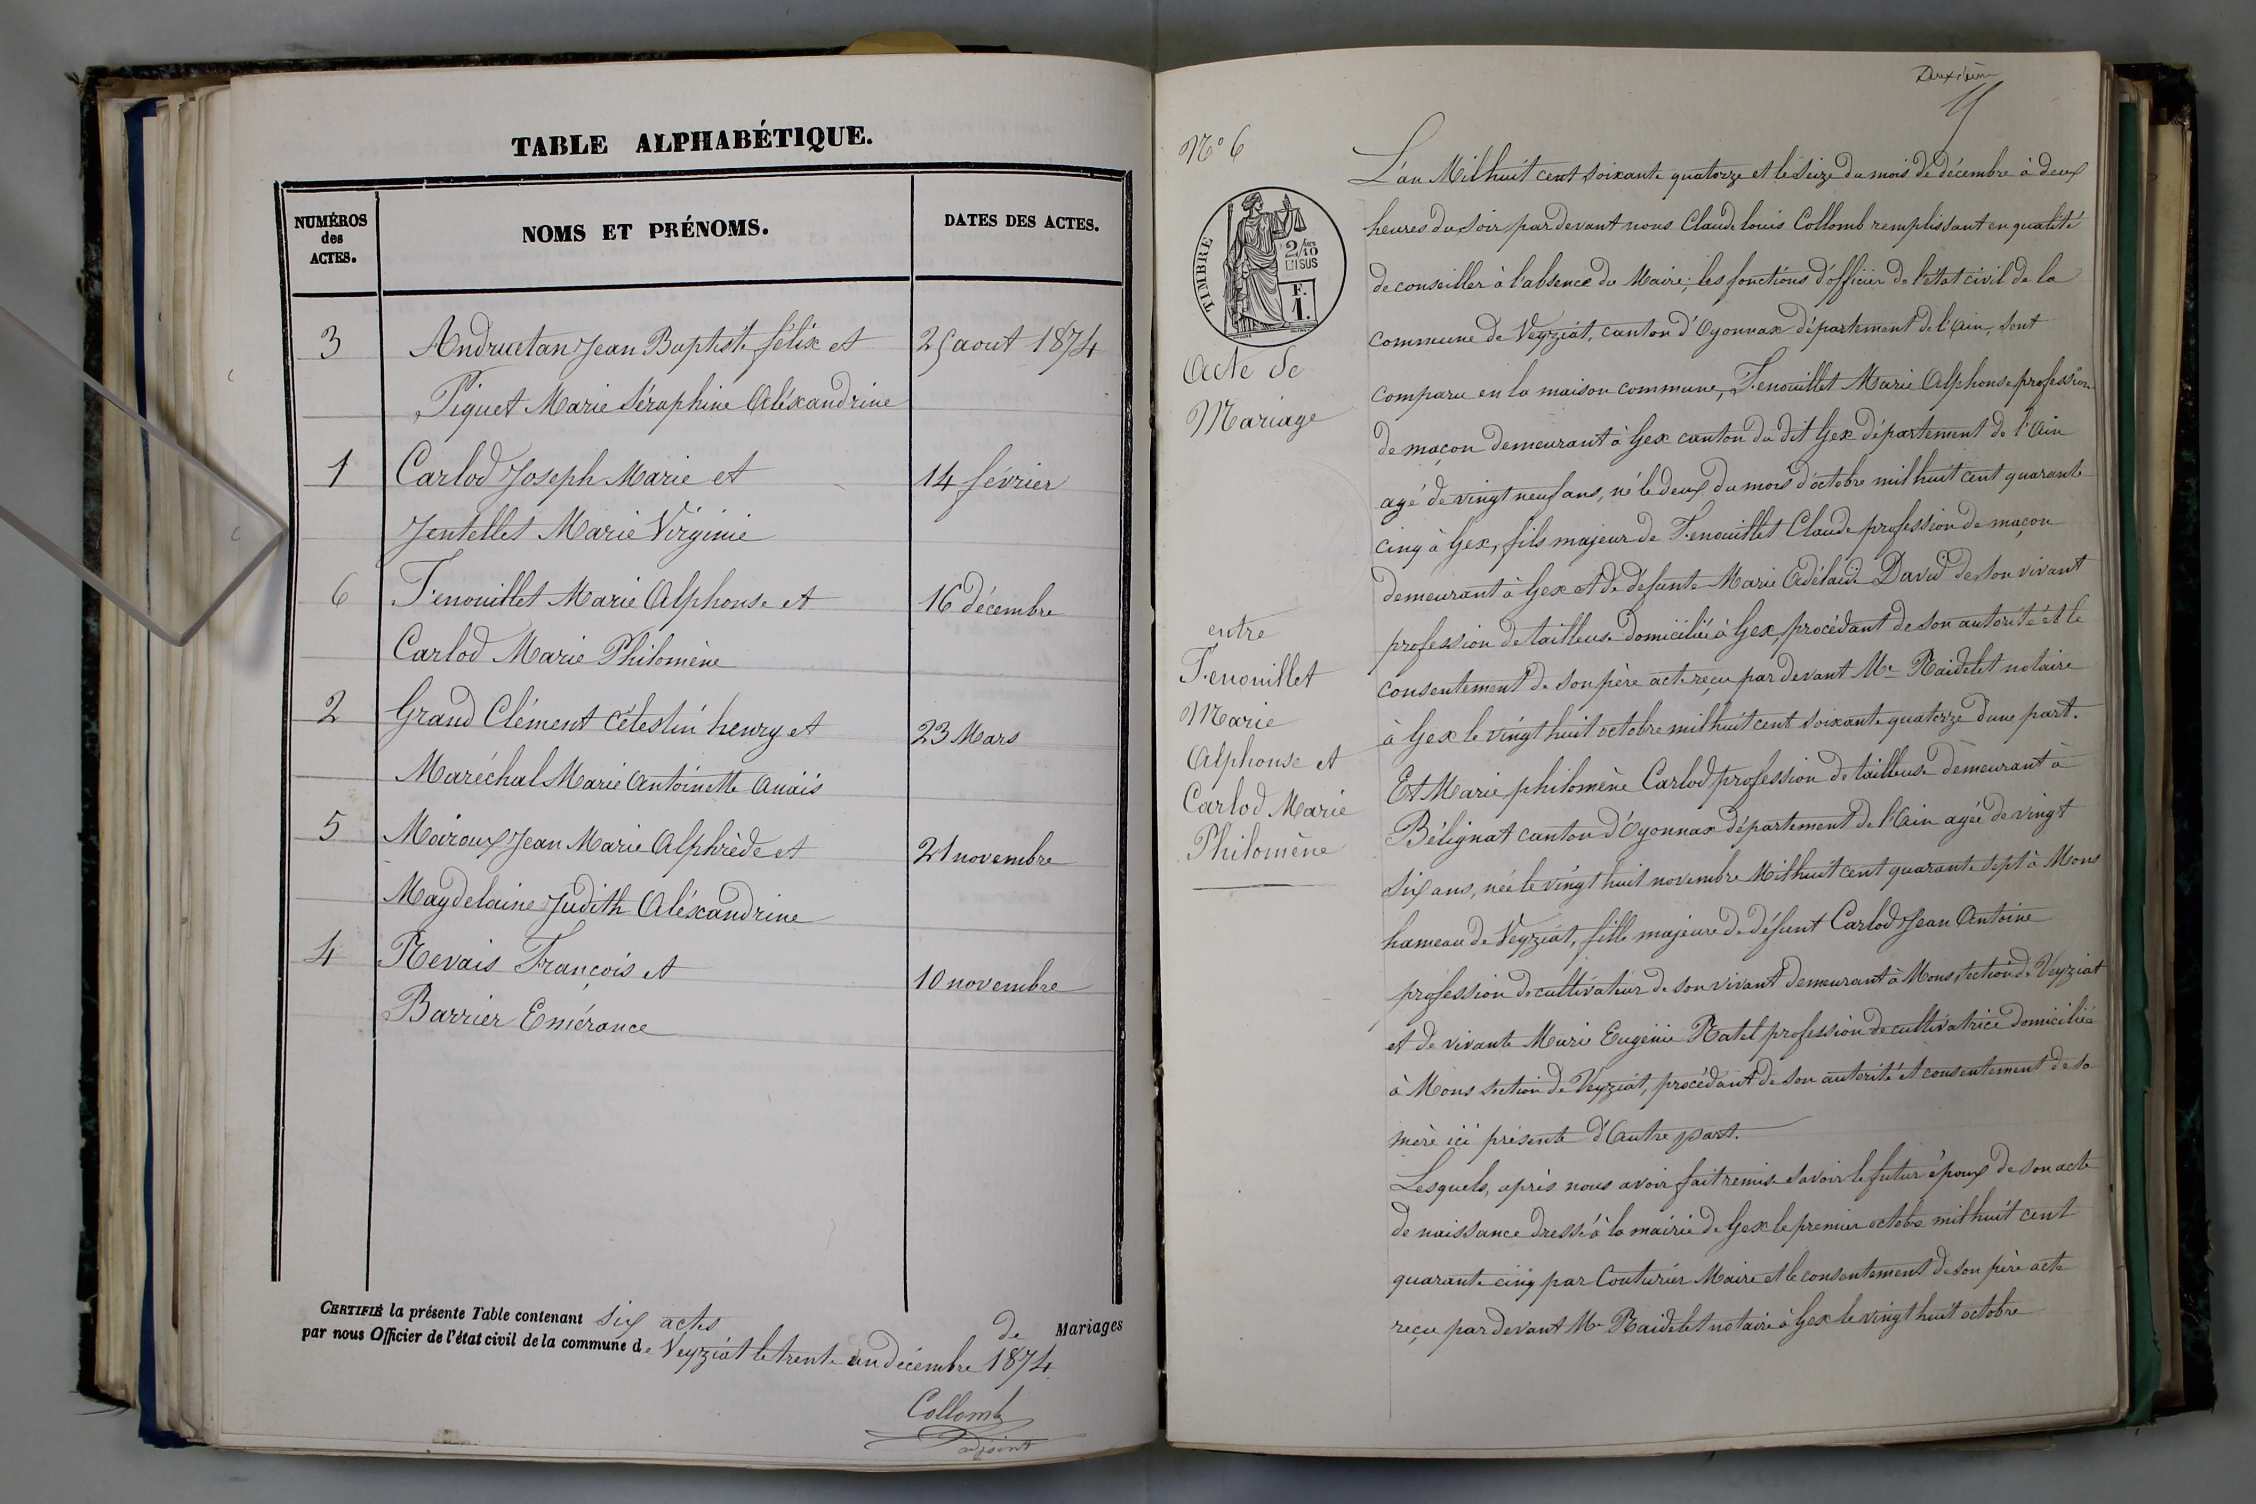 TABLE ALPHABÉTIQUE.
NUMÉROS
des
ACTES.
NOMS ET PRÉNOMS.
DATES DES ACTES.
3 Andruetan Jean Baptiste félix et 25 aout 1874
Piquet Marie Séraphine Aléxandrine
1 Carlod Joseph Marie et 14 février
Jentellet Marie Virginie
6 Fenouillet Marie Alphonse et 16 décembre
Carlod Marie Philomène
2 Grand Clément Célestin henry et 23 Mars
Maréchal Marie Antoinette Anaïs
5 Moiroux Jean Marie Alphrède et 21 novembre
Maydelaine Judith Aléxandrine
4 Revais François et 10 novembre
Barrier Emérance
CERTIFIÉ la présente Table contenant six actes de Mariages
par nous Officier de l'état civil de la commune de Veyziat le trente un décembre 1874.
Collomb
adjoint
Deuxième
N° 6
TIMBRE
2/10
EN SUS
F.
1.
Acte de
Mariage
entre
Fenouillet
Marie
Alphonse et
Carlod Marie
Philomène
L'an Mil huit cent soixante quatorze et le seize du mois de décembre à deux
heures du soir par devant nous Claude louis Collomb remplissant en qualité
de conseiller à l'absence du Maire, les fonctions d'officier de l'état civil de la
commune de Veyziat, canton d'Oyonnax département de l'Ain, sont
comparu en la maison commune, Fenouillet Marie Alphonse profession
de maçon demeurant à Gex canton du dit Gex département de l'Ain
agé de vingt neuf ans, né le deux du mois d'octobre mil huit cent quarante
cinq à Gex, fils majeur de Fenouillet Claude profession de maçon
demeurant à Gex et de défunte Marie Adélaide David de son vivant
profession de tailleuse domiciliée à Gex, procédant de son autorité et le
consentement de son père acte reçu par devant Me Raidelet notaire
à Gex le vingt huit octobre mil huit cent soixante quatorze d'une part.
Et Marie philomène Carlod profession de tailleuse demeurant à
Bélignat canton d'Oyonnax département de l'Ain agée de vingt
six ans, née le vingt huit novembre Mil huit cent quarante sept à Mons
hameau de Veyziat, fille majeure de défunt Carlod Jean Antoine
profession de cultivateur de son vivant demeurant à Mons section de Veyziat
et de vivante Marie Eugénie Ratel profession de cultivatrice domiciliée
à Mons section de Veyziat, procédant de son autorité et consentement de sa
mère ici présente d'Autre part.
Lesquels, après nous avoir fait remise savoir le futur époux de son acte
de naissance dressé à la mairie de Gex le premier octobre mil huit cent
quarante cinq par Couturier Maire et le consentement de son père acte
reçu par devant Me Raidelet notaire à Gex le vingt huit octobre